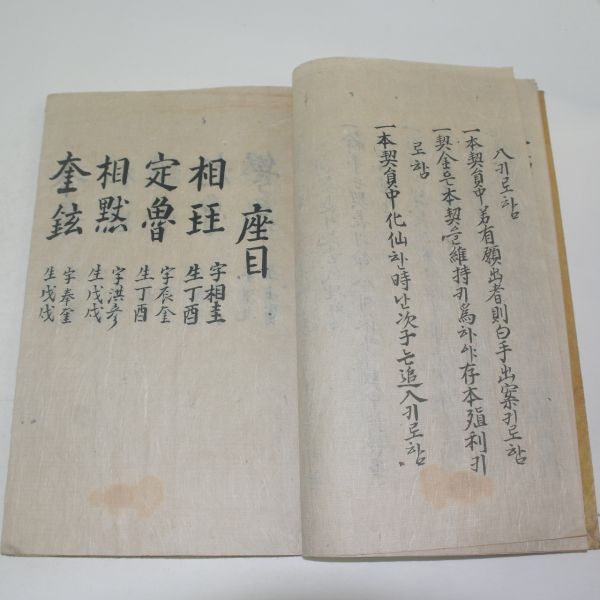 八키로함
一本契員中若有願出者則白手出案키로함
一契金은本契을維持키爲하야存本殖利키
로함
一本契員中化仙한時난次子로追入키로함
座目
相珏 字相圭 生丁酉
定魯 字辰奎 生丁酉
相默 字洪彦 生戊戌
奎鉉 字奉奎 生戊戌